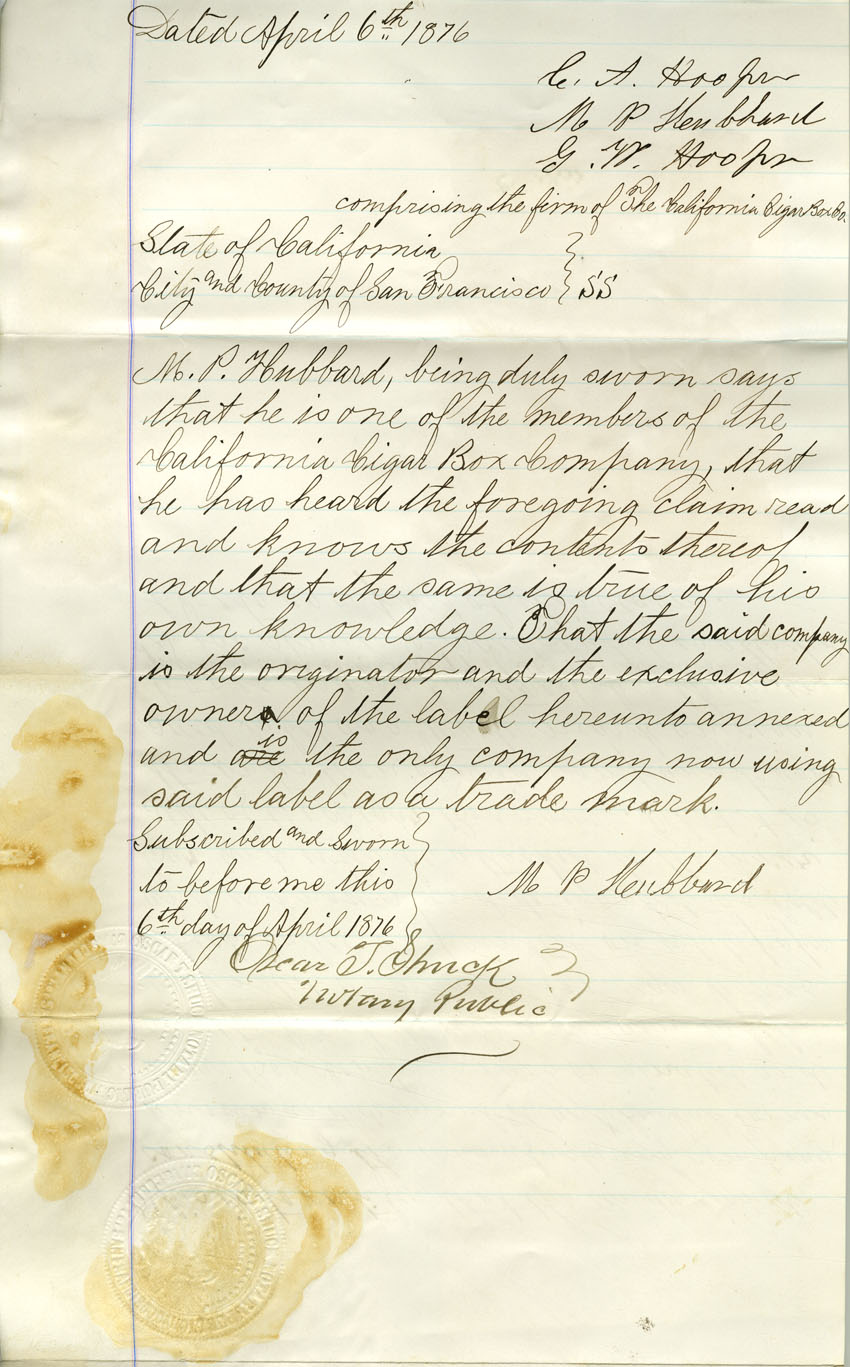 Dated April 6th 1876
C. A. Hooper
M P Hubbard
G. W. Hooper
comprising the firm of The California Cigar Box Co.
State of California
City and County of San Francisco } SS
M. P. Hubbard, being duly sworn says
that he is one of the members of the
California Cigar Box Company, that
he has heard the foregoing claim read
and knows the contents thereof
and that the same is true of his
own knowledge. That the said company
is the originator and the exclusive
owner of the label hereunto annexed
and are is the only company now using
said label as a trade mark.
Subscribed and Sworn
to before me this
M P Hubbard
6th day of April 1876
Oscar T. Shuck
Notary Public